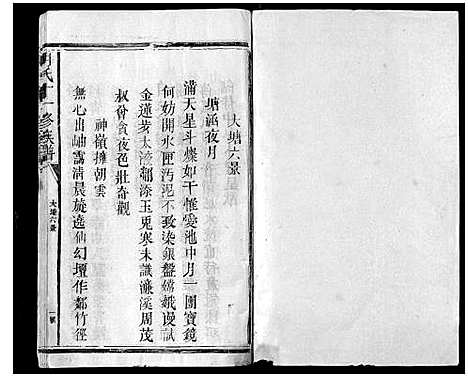 大塘六景
塘涵夜月
滿天星斗燦如干惟愛池中月一團寶鏡
何妨開水匣汚泥不致染銀盤嫦娥謾試
金蓮步太液翻添玉兎寒未識濂溪周茂
叔曾貪夜色壯奇觀
神嶺擁朝雲
無心出岫靄清晨旋遶仙幻壇作鄰竹徑
氏十一修族譜
大塘六景